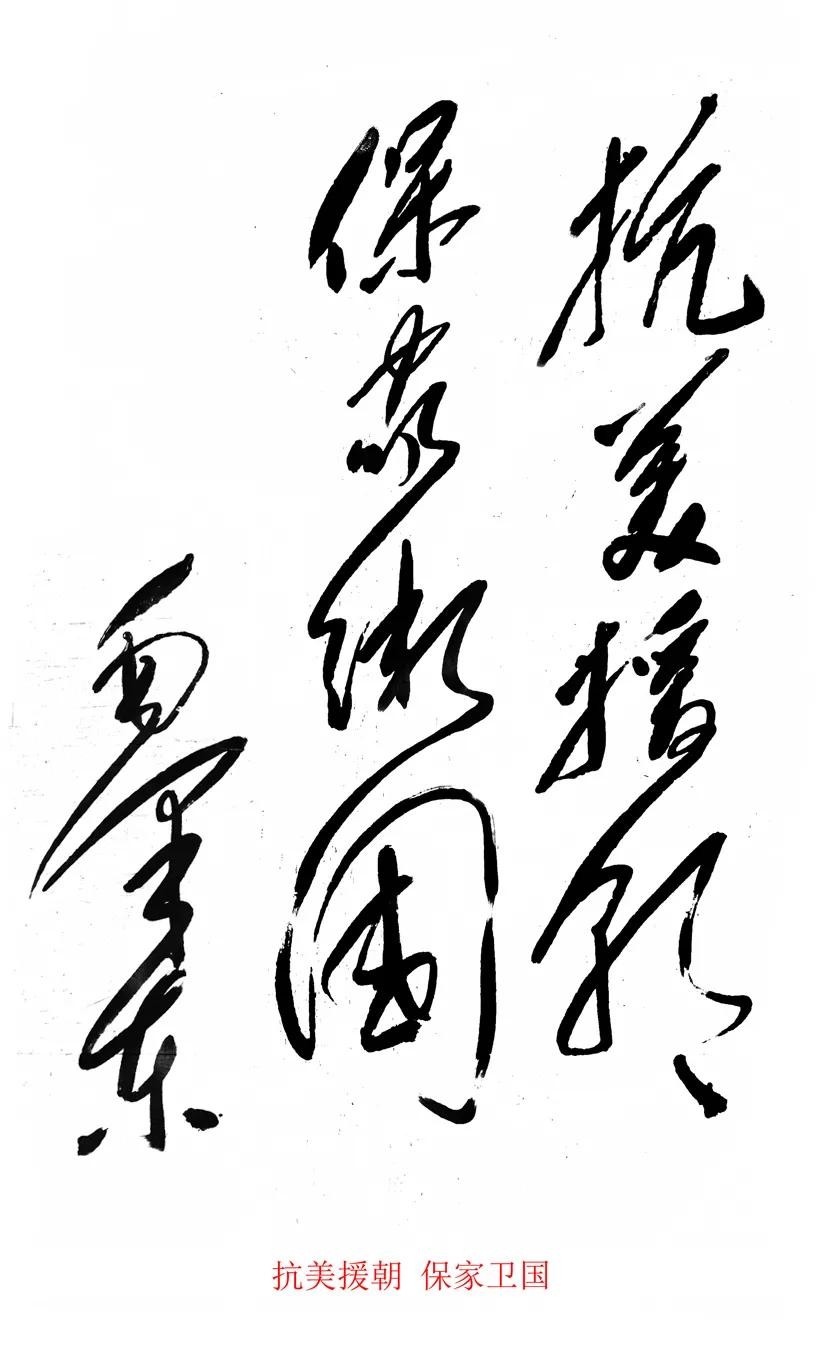 抗美援朝
保家衛國
毛澤東
抗美援朝 保家卫国